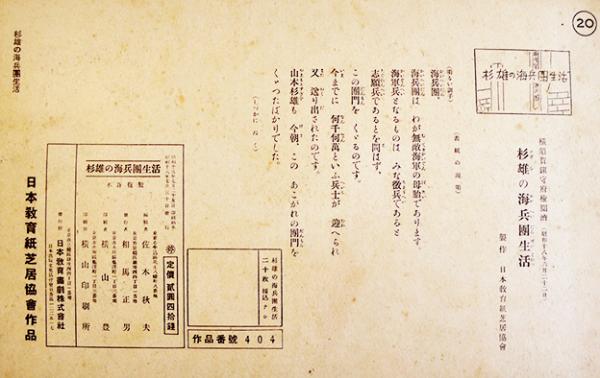 ⑳
杉雄の海兵團生活
橫須賀鎭守府檢閱濟(昭和十八年六月二十二日)
杉雄の海兵團生活
製作 日本敎育紙芝居協會
(表紙の場面)
海兵團。
海兵團は、わが無敵海軍の母胎であります。
海軍兵となるものは、みな徴兵であると
志願兵であるとを問はず、
この團門を くゞるのです。
今までに 何千何萬といふ兵士が 迎へられ
又 送り出されたのです。
山本杉雄も 今朝、この あこがれの團門を
くゞつたばかりでした。
(しづかに ぬく)
杉雄の海兵團生活
二十枚
作品番號 404
杉雄の海兵團生活
不許複製
定價 貳圓四拾錢
佐木秋夫
相馬正男
橫山豊
橫山印刷所
日本敎育畫劇株式會社
日本敎育紙芝居協會作品
杉雄の海兵團生活